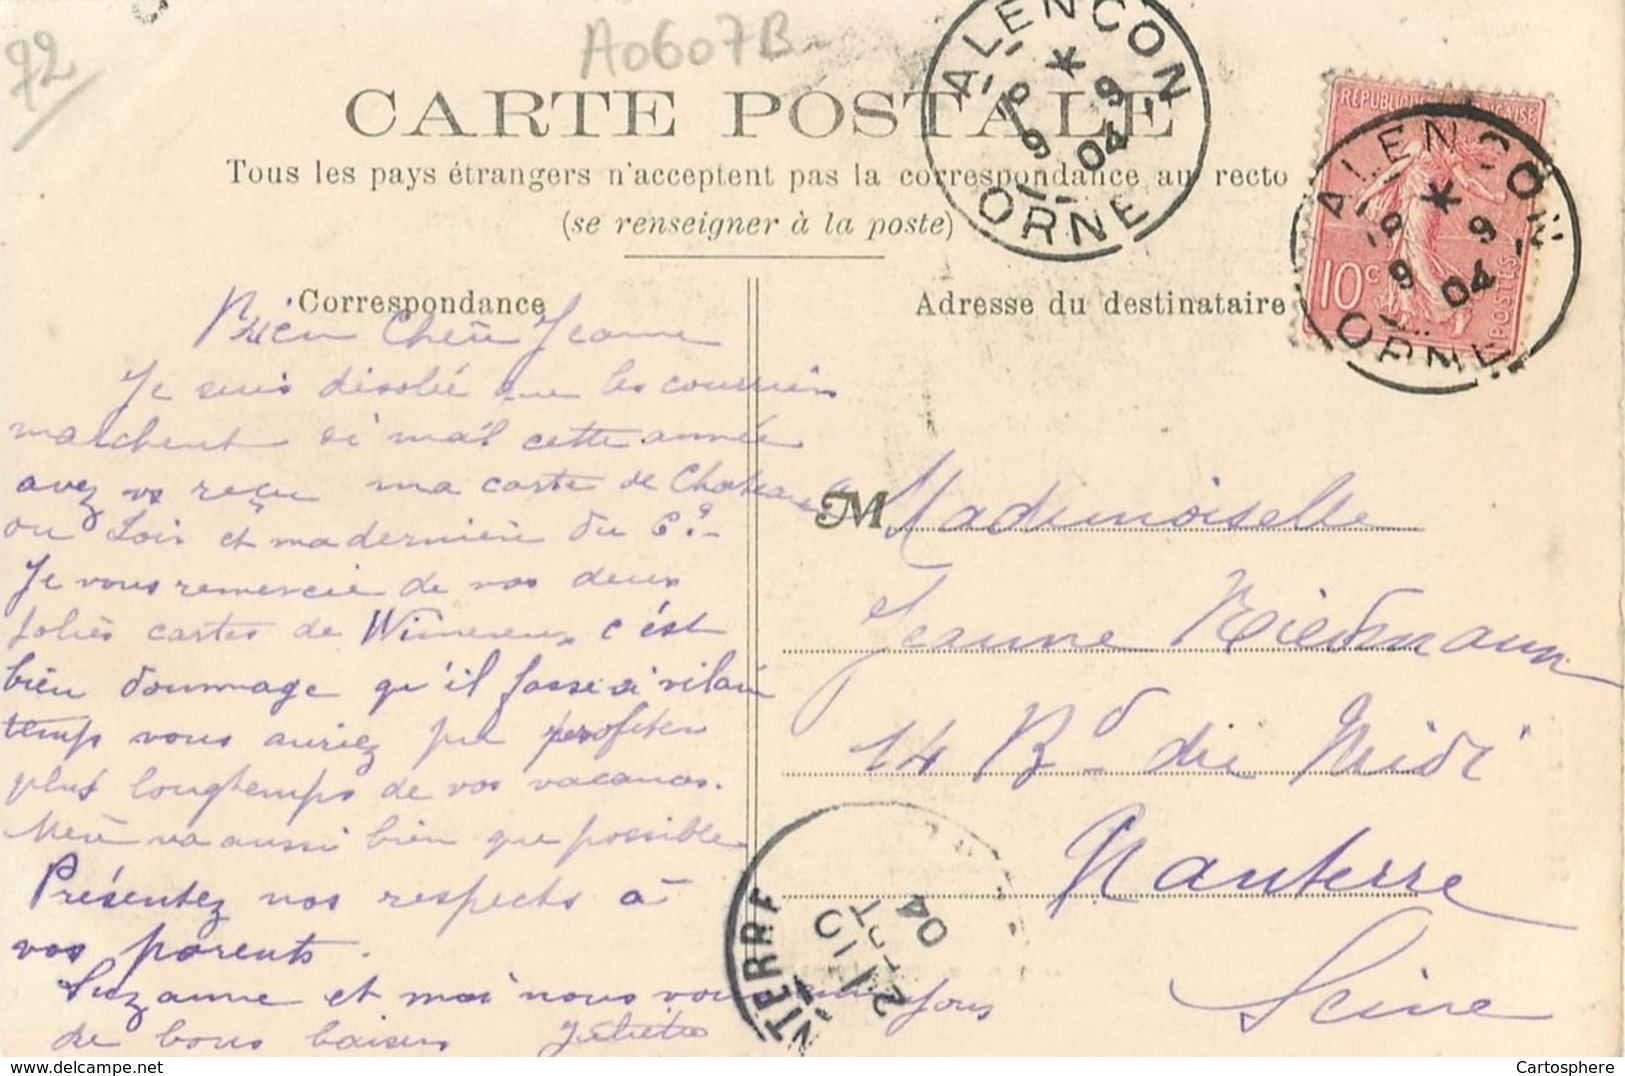 72
A0607B
CARTE POSTALE
Tous les pays étrangers n'acceptent pas la correspondance au recto
(se renseigner à la poste)
ALENCON
9 04
ORNE
REPUBLIQUE FRANÇAISE
10c
POSTES
ALENCON
9 04
ORNE
Correspondance
Adresse du destinataire
Bien Chère Jeanne
Je suis désolée que les courriers
marchent si mal cette année
avez vs reçu ma carte de Chateau
ou Loir et ma dernière du 6?
Je vous remercie de vos deux
jolies cartes de Wimereux c'est
bien dommage qu'il fasse si vilain
temps vous auriez pu profiter
plus longtemps de vos vacances.
Mère va aussi bien que possible
Présentez nos respects à
vos parents.
Suzanne et moi nous vous envoyons
de bons baisers Juliette
M Mademoiselle
Jeanne Niedmann
14 Bd du Midi
Nanterre
Seine
NTERRE
04
Cartosphere
www.delcampe.net